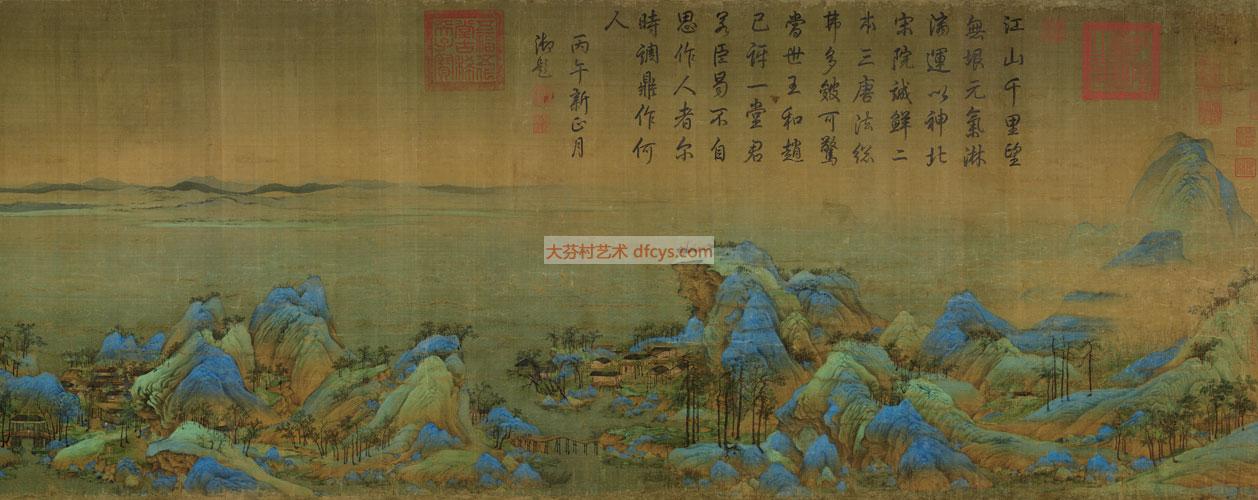 江山千里望
無垠元氣淋
漓運以神北
宋院誠鮮二
本三唐法総
弗多皴可驚
當世王和趙
已訝一堂君
若臣曷不自
思作人者尔
時調鼎作何
人
丙午新正月
御題
大芬村艺术 dfcys.com